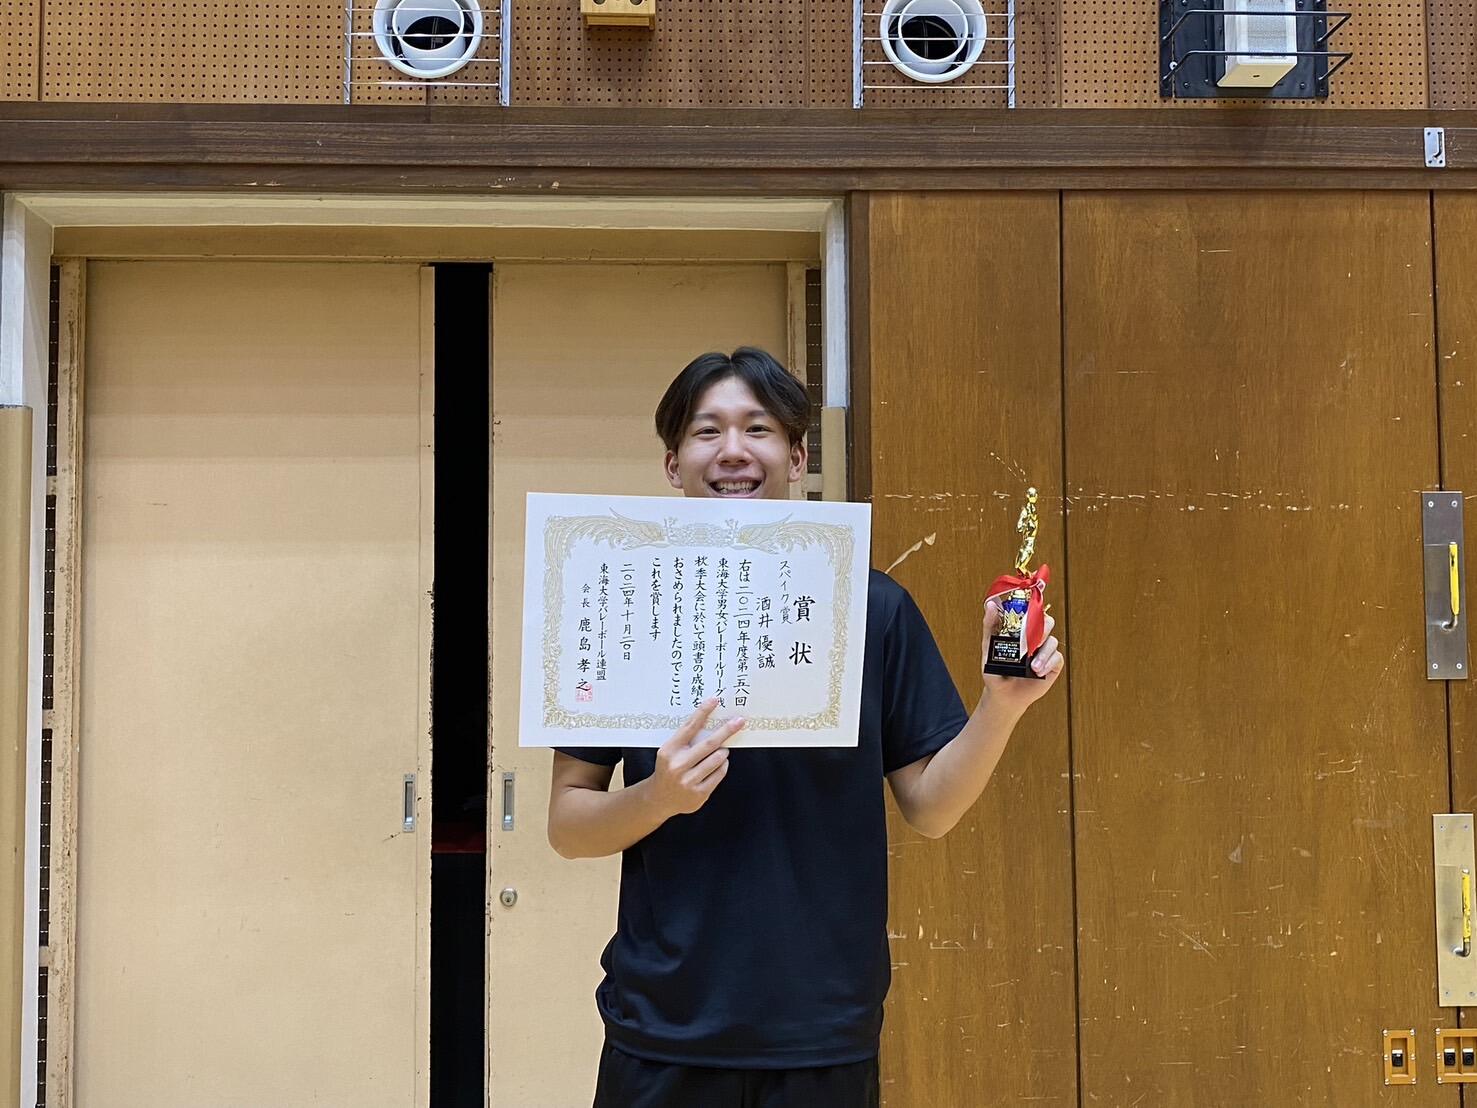 賞状
スパイク賞
酒井 優誠
右は二〇二四年度第一五八回
東海大学男女バレーボールリーグ戦
秋季大会に於いて頭書の成績を
おさめられましたのでここに
これを賞します
二〇二四年十月二〇日
東海大学バレーボール連盟
会長 鹿島 孝之
スパイク賞